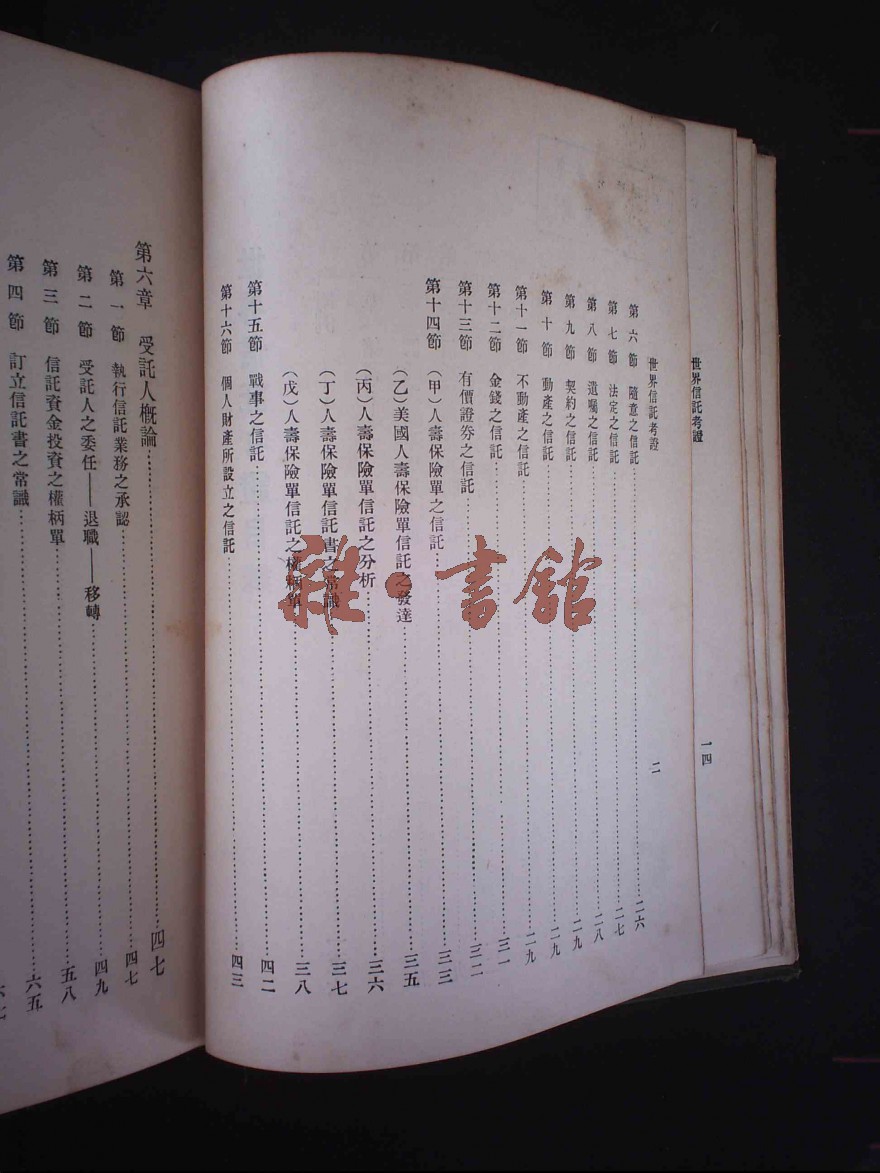 世界信託考證
一四
世界信託考證
二
第六節 隨意之信託……二六
第七節 法定之信託……二七
第八節 遺囑之信託……二八
第九節 契約之信託……二九
第十節 動產之信託……二九
第十一節 不動產之信託……二九
第十二節 金錢之信託……三一
第十三節 有價證券之信託……三二
第十四節 (甲)人壽保險單之信託……三三
(乙)美國人壽保險單信託之發達……三五
(丙)人壽保險單信託之分析……三六
(丁)人壽保險單信託書之常識……三七
(戊)人壽保險單信託之權柄單……三八
第十五節 戰事之信託……四二
第十六節 個人財產所設立之信託……四三
第六章 受託人概論……四七
第一節 執行信託業務之承認……四七
第二節 受託人之委任——退職——移轉……四九
第三節 信託資金投資之權柄單……五八
第四節 訂立信託書之常識……六五
雜·書館